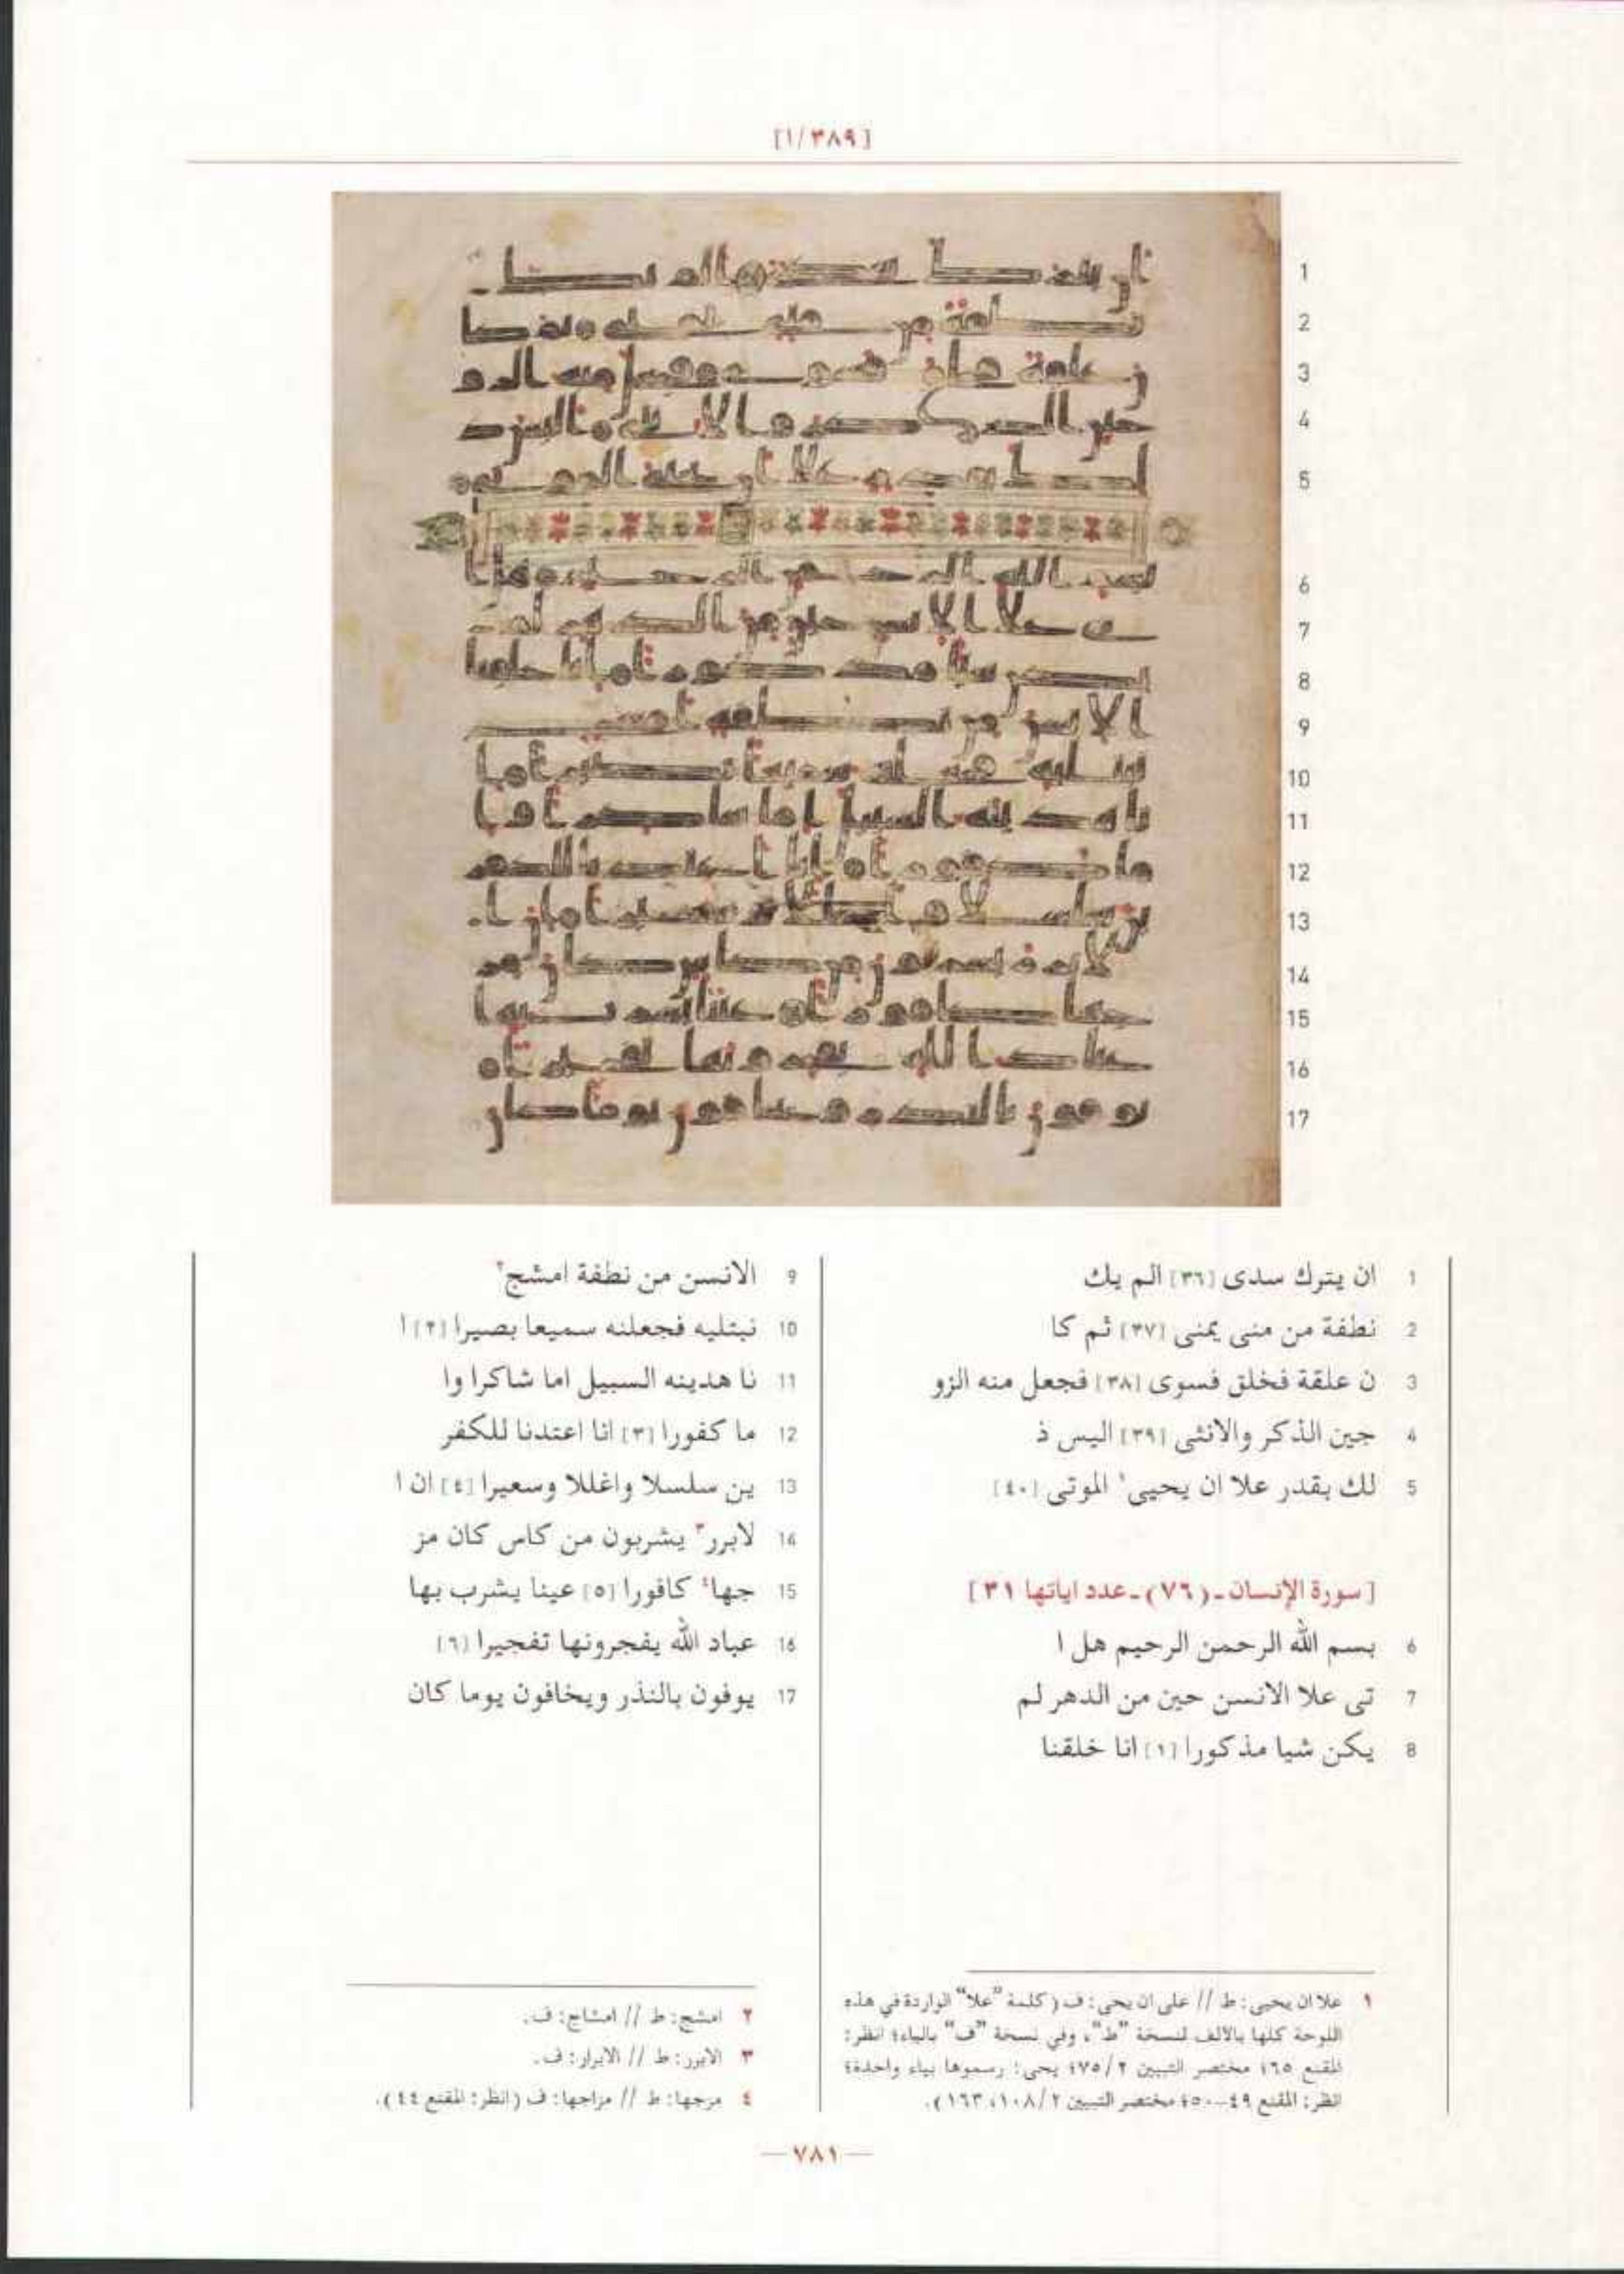 [١/٣٨٩]
1 ان يترك سدى [٣٦] الم يك
2 نطفة من منى يمنى [٣٧] ثم كا
3 ن علقة فخلق فسوى [٣٨] فجعل منه الزو
4 جين الذكر والانثى [٣٩] اليس ذ
5 لك بقدر علا ان يحيى١ الموتى [٤٠]
[سورة الإنسان ـ (٧٦) ـ عدد اياتها ٣١]
6 بسم الله الرحمن الرحيم هل ا
7 تى علا الانسن حين من الدهر لم
8 يكن شيا مذكورا [١] انا خلقنا
9 الانسن من نطفة امشج٢
10 نبتليه فجعلنه سميعا بصيرا [٢] ا
11 نا هدينه السبيل اما شاكرا وا
12 ما كفورا [٣] انا اعتدنا للكفر
13 ين سلسلا واغللا وسعيرا [٤] ان ا
14 لابرر٣ يشربون من كاس كان مز
15 جها٤ كافورا [٥] عينا يشرب بها
16 عباد الله يفجرونها تفجيرا [٦]
17 يوفون بالنذر ويخافون يوما كان
١ علا ان يحيى: ط // على ان يحى: ف (كلمة "علا" الواردة في هذه
اللوحة كلها بالالف لنسخة "ط"، وفي نسخة "ف" بالياء؛ انظر:
المقنع ٦٥؛ مختصر التبيين ٧٥/٢؛ يحى: رسموها بياء واحدة؛
انظر: المقنع ٤٩-٥٠؛ مختصر التبيين ١٠٨/٢، ١٦٣).
٢ امشج: ط // امشاج: ف.
٣ الابرر: ط // الابرار: ف.
٤ مزجها: ط // مزاجها: ف (انظر: المقنع ٤٤).
— ٧٨١ —